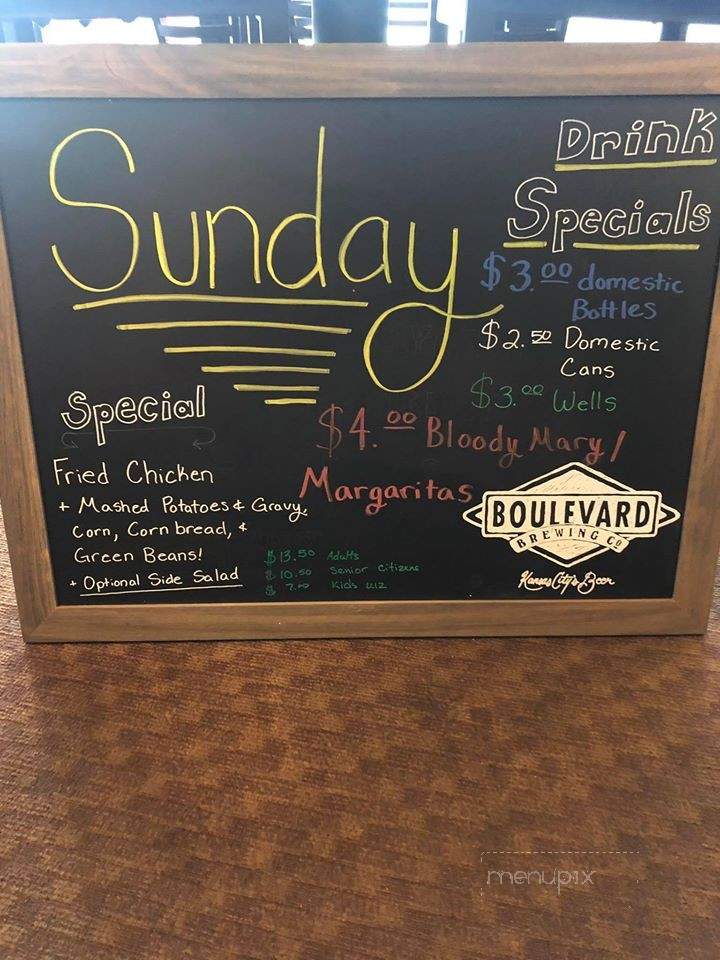 Sunday
Drink
Specials
$3.00 domestic
Bottles
$2.50 Domestic
Cans
$3.00 Wells
$4.00 Bloody Mary/
Margaritas
Special
Fried Chicken
+ Mashed Potatoes & Gravy,
Corn, Corn bread, &
Green Beans!
+ Optional Side Salad
$13.50 Adults
$10.50 Senior Citizens
$7.00 Kids
BOULEVARD
BREWING CO
Kansas City's Beer
menupix